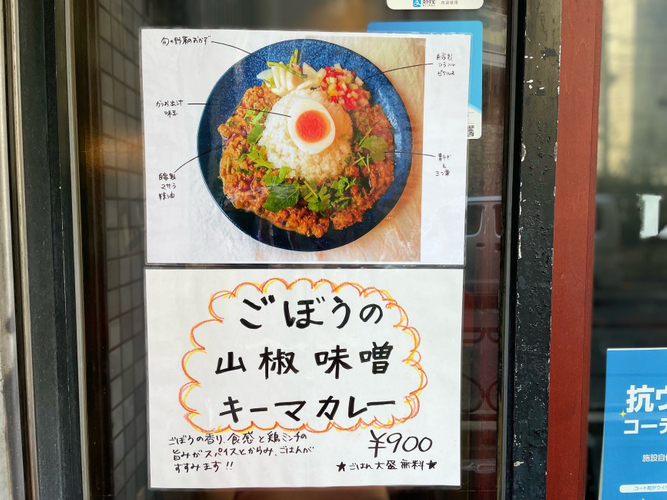 旬の野菜のおかず
かつお出汁
味玉
自家製
マサラ
醤油
ピクルス
三つ葉
ごぼうの
山椒味噌
キーマカレー
ごぼうの香り、食感と鶏ミンチの
旨みがスパイスとからみ、ごはんが
すすみます!!
¥900
★ごはん大盛無料★
抗ウ
コーテ
施設自